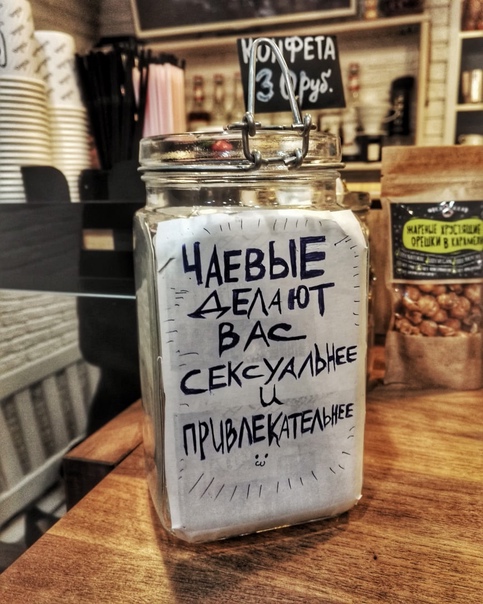 КОНФЕТА
30 руб.
ЧАЕВЫЕ
ДЕЛАЮТ
ВАС
СЕКСУАЛЬНЕЕ
И
ПРИВЛЕКАТЕЛЬНЕЕ
ЖАРЕНЫЕ ХРУСТЯЩИЕ
ОРЕШКИ В КАРАМЕЛИ